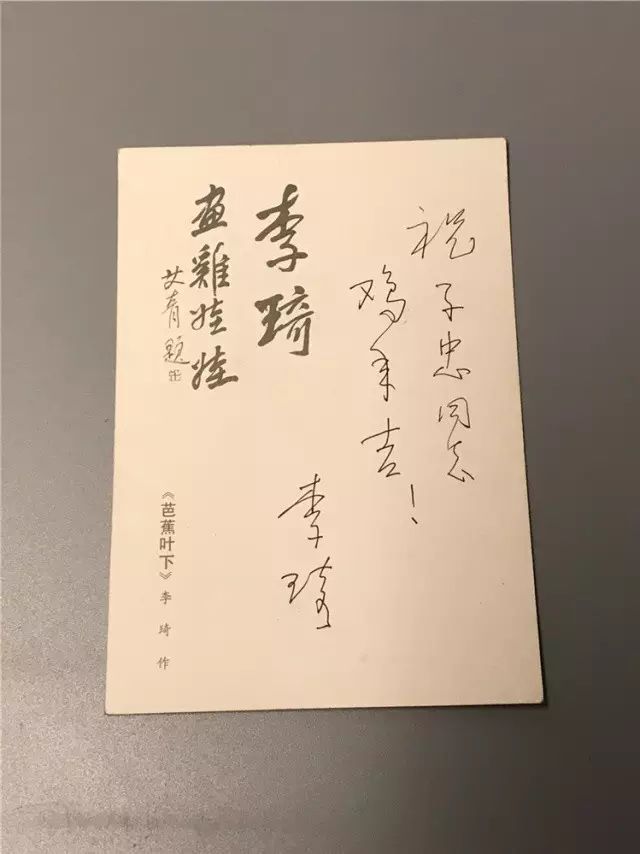 祝子忠同志
鸡年吉！
李琦
李琦
画雞娃娃
艾青题
《芭蕉叶下》李琦 作